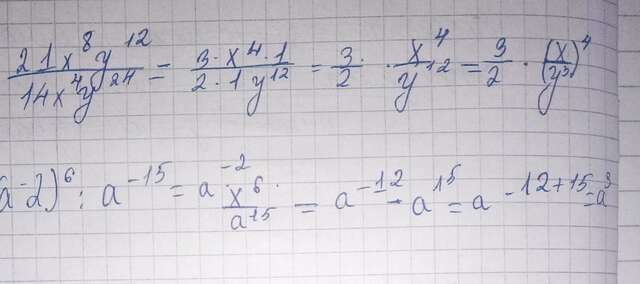 21x⁸y¹²/14x⁴y²⁴ = 3·x⁴·1/2·1y¹² = 3/2 · x⁴/y¹² = 3/2 · (x/(y³)⁴
(a-2)⁶ : a⁻¹⁵ = a⁻² x⁶/a¹⁵ = a⁻¹² - a¹⁵ = a⁻¹²⁺¹⁵ = a³